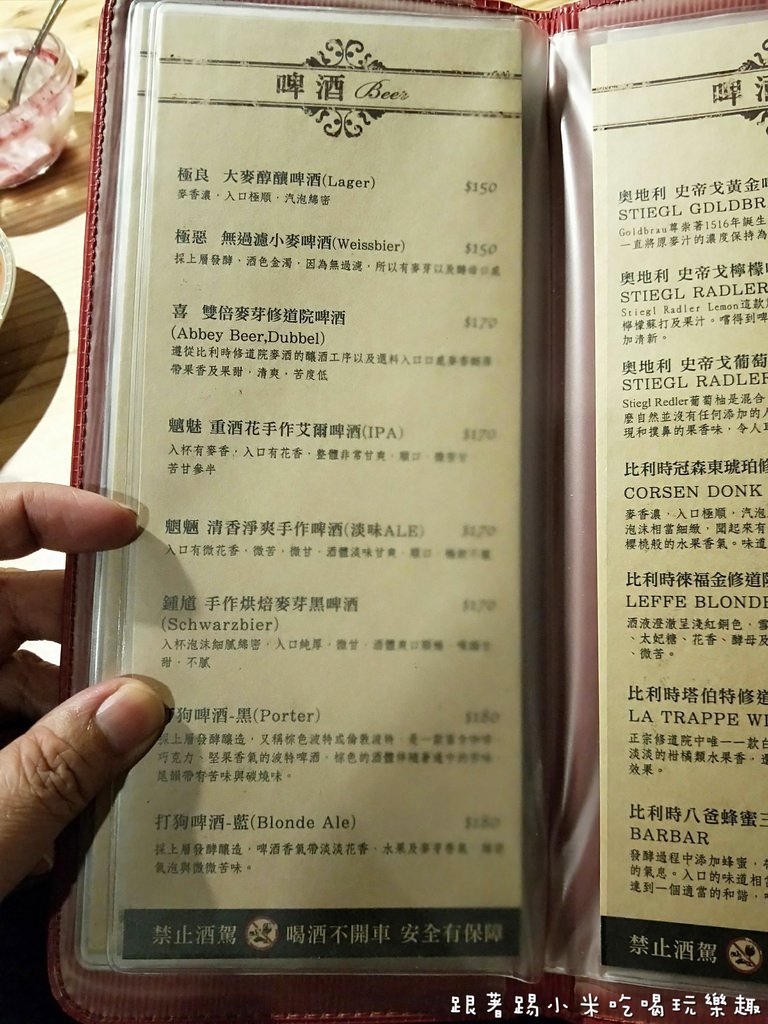 啤酒 Beer
極良 大麥醇釀啤酒(Lager) $150
麥香濃，入口極順，汽泡綿密
極惡 無過濾小麥啤酒(Weissbier) $150
採上層發酵，酒色金濁，因為無過濾，所以有麥芽以及酵母口感
喜 雙倍麥芽修道院啤酒 $170
(Abbey Beer,Dubbel)
遵從比利時修道院麥酒的釀酒工序以及選料入口口感麥香
帶果香及果甜，清爽，苦度低
魑魅 重酒花手作艾爾啤酒(IPA) $170
入杯有麥香，入口有花香，整體非常甘爽，順口，微苦甘
苦甘參半
魍魎 清香淨爽手作啤酒(淡味ALE) $170
入口有微花香，微苦，微甘，酒體淡味甘爽，順口
鍾馗 手作烘焙麥芽黑啤酒 $170
(Schwarzbier)
入杯泡沫細膩綿密，入口純厚，微甘，酒體爽口順暢
甜，不膩
狗啤酒-黑(Porter) $180
採上層發酵釀造，又稱棕色波特或倫敦波特，是一款富含咖啡
巧克力、堅果香氣的波特啤酒，棕色的酒體伴隨著
尾韻帶有苦味與碳燒味。
打狗啤酒-藍(Blonde Ale) $180
採上層發酵釀造，啤酒香氣帶淡淡花香、水果及麥芽香氣
氣泡與微微苦味。
禁止酒駕 喝酒不開車 安全有保障
啤
奧地利 史帝戈黃金
STIEGL GDLDBR
Goldbrau尊崇著1516年誕生
一直將原麥汁的濃度保持為
奧地利 史帝戈檸檬
STIEGL RADLER
Stiegl Radler Lemon這款
檸檬蘇打及果汁。嚐得到
加清新。
奧地利 史帝戈葡萄
STIEGL RADLER
Stiegl Redler葡萄柚是混合
麼自然並沒有任何添加的人
現和撲鼻的果香味，令人
比利時冠森東琥珀修
CORSEN DONK
麥香濃，入口極順，汽泡
泡沫相當細緻，聞起來有
櫻桃般的水果香氣。味道
比利時徠福金修道院
LEFFE BLONDE
酒液澄澈呈淺紅銅色，雪
、太妃糖、花香、酵母及
、微苦。
比利時塔伯特修道
LA TRAPPE WI
正宗修道院中唯一一款白
淡淡的柑橘類水果香，還
效果。
比利時八爸蜂蜜三
BARBAR
發酵過程中添加蜂蜜，
的氣息。入口的味道相當
達到一個適當的和諧，
禁止酒駕
跟著踢小米吃喝玩樂趣